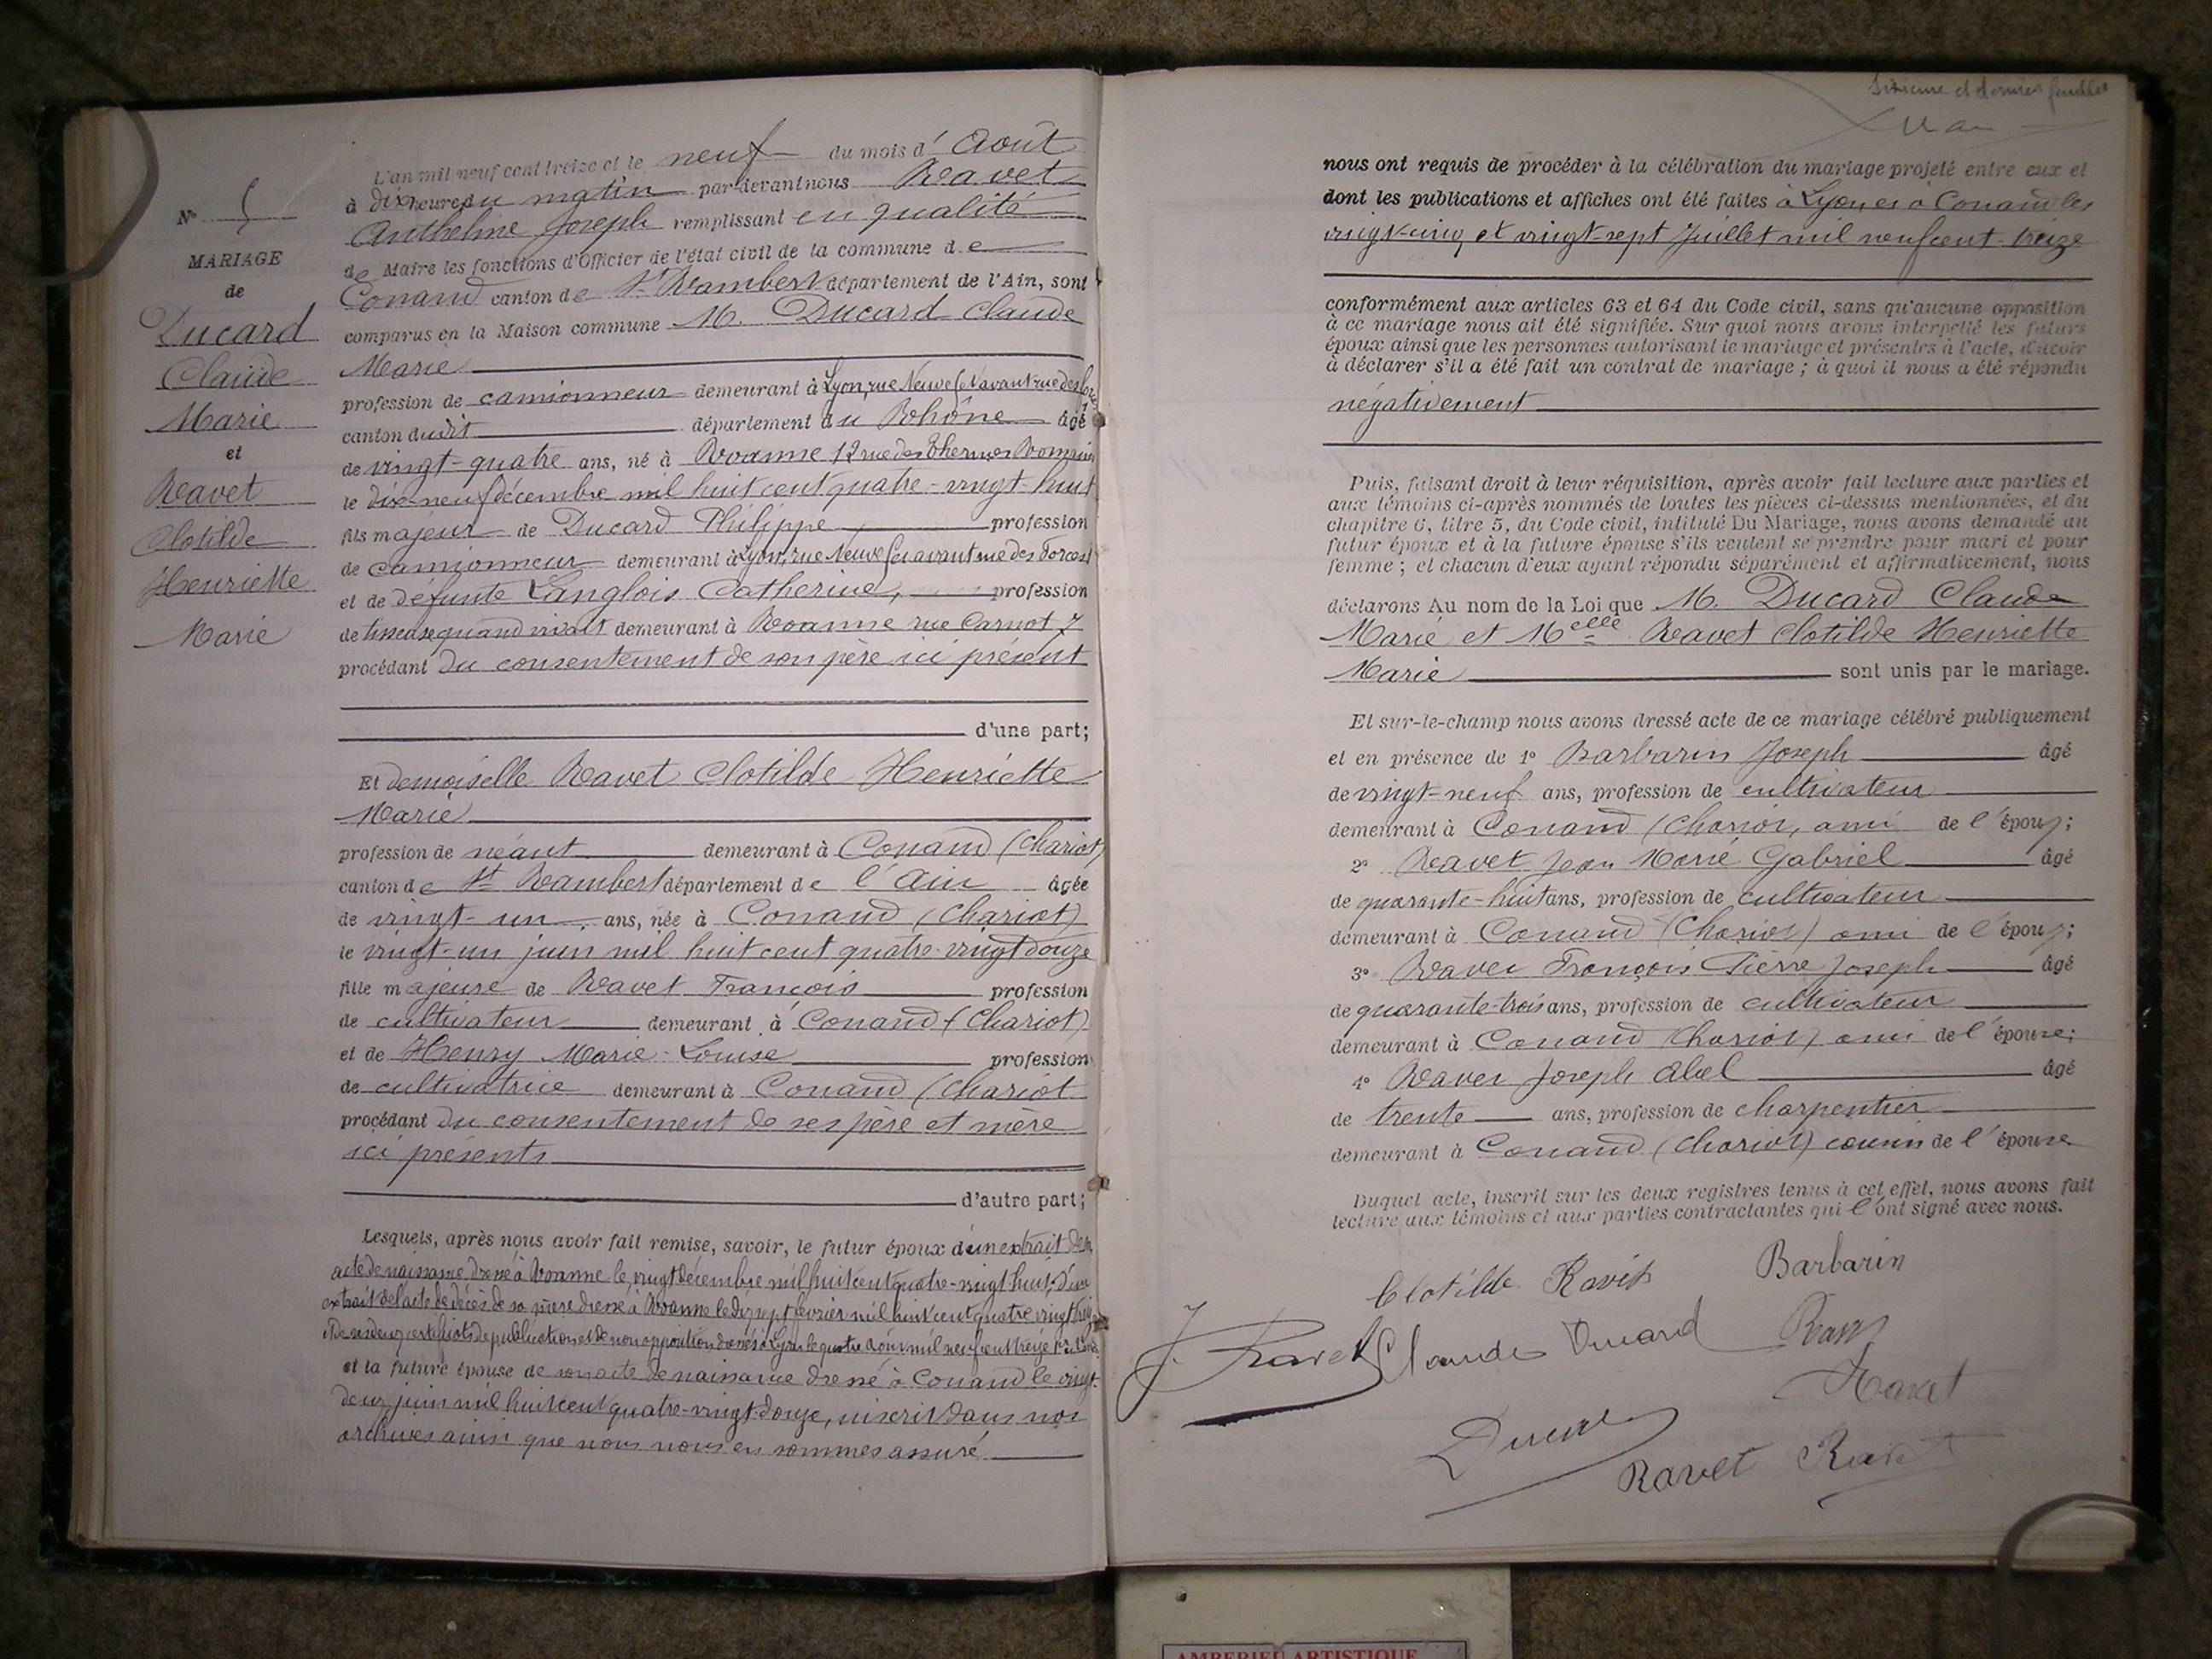 N° 5
MARIAGE
de
Ducard
Claude
Marie
et
Ravet
Clotilde
Henriette
Marie
L'an mil neuf cent treize et le neuf du mois d'Août
à dix heures du matin par-devant nous Ravet
Anthelme Joseph remplissant en qualité
de Maire les fonctions d'Officier de l'état civil de la commune de
Conand canton de St Rambert département de l'Ain, sont
comparus en la Maison commune M. Ducard Claude
Marie
profession de camionneur demeurant à Lyon, rue Neuve
canton dudit département du Rhône âgé
de vingt-quatre ans, né à Roanne 12 rue des Thermes Romains
le dix-neuf décembre mil huit cent quatre-vingt-huit
fils majeur de Ducard Philippe profession
de camionneur demeurant à Lyon, rue Neuve
et de défunte Langlois Catherine, profession
de tisseuse quand vivait demeurant à Roanne rue Carnot 7
procédant du consentement de son père ici présent
d'une part;
Et demoiselle Ravet Clotilde Henriette
Marie
profession de néant demeurant à Conand (Chariot)
canton de St Rambert département de l'Ain âgée
de vingt-un ans, née à Conand (Chariot)
le vingt-un juin mil huit cent quatre-vingt douze
fille majeure de Ravet François profession
de cultivateur demeurant à Conand (Chariot)
et de Henry Marie-Louise profession
de cultivatrice demeurant à Conand (Chariot
procédant du consentement de ses père et mère
ici présents
d'autre part;
Lesquels, après nous avoir fait remise, savoir, le futur époux d'un extrait de son
acte de naissance dressé à Roanne le vingt décembre mil huit cent quatre-vingt huit, d'un
extrait de l'acte de décès de sa mère dressé à Roanne le dix sept février mil huit cent quatre vingt
de publication et de non opposition dressés à Lyon le quatre Août mil neuf cent treize
et la future épouse de son acte de naissance dressé à Conand le vingt-
deux juin mil huit cent quatre-vingt-douze, inscrit dans nos
archives ainsi que nous nous en sommes assuré
Sixième et dernier feuillet
nous ont requis de procéder à la célébration du mariage projeté entre eux et
dont les publications et affiches ont été faites à Lyon et à Conand les
vingt-cinq et vingt-sept Juillet mil neuf cent treize
conformément aux articles 63 et 64 du Code civil, sans qu'aucune opposition
à ce mariage nous ait été signifiée. Sur quoi nous avons interpellé les futurs
époux ainsi que les personnes autorisant le mariage et présentes à l'acte, d'avoir
à déclarer s'il a été fait un contrat de mariage; à quoi il nous a été répondu
négativement
Puis, faisant droit à leur réquisition, après avoir fait lecture aux parties et
aux témoins ci-après nommés de toutes les pièces ci-dessus mentionnées, et du
chapitre 6, titre 5, du Code civil, intitulé Du Mariage, nous avons demandé au
futur époux et à la future épouse s'ils veulent se prendre pour mari et pour
femme; et chacun d'eux ayant répondu séparément et affirmativement, nous
déclarons Au nom de la Loi que M. Ducard Claude
Marie et Melle Ravet Clotilde Henriette
Marie sont unis par le mariage.
Et sur-le-champ nous avons dressé acte de ce mariage célébré publiquement
et en présence de 1° Barbarin Joseph âgé
de vingt-neuf ans, profession de cultivateur
demeurant à Conand (Chariot, ami de l'époux;
2° Ravet Jean Marie Gabriel âgé
de quarante-huit ans, profession de cultivateur
demeurant à Conand (Chariot) ami de l'époux;
3° Ravet François Pierre Joseph âgé
de quarante-trois ans, profession de cultivateur
demeurant à Conand (Chariot) ami de l'épouse;
4° Ravet Joseph Abel âgé
de trente ans, profession de charpentier
demeurant à Conand (Chariot) cousin de l'épouse
Duquel acte, inscrit sur les deux registres tenus à cet effet, nous avons fait
lecture aux témoins et aux parties contractantes qui l'ont signé avec nous.
Clotilde Ravet Barbarin
J. Ravet Claude Ducard
Ravet
Ravet Ravet
AMBERIEU ARTISTIQUE